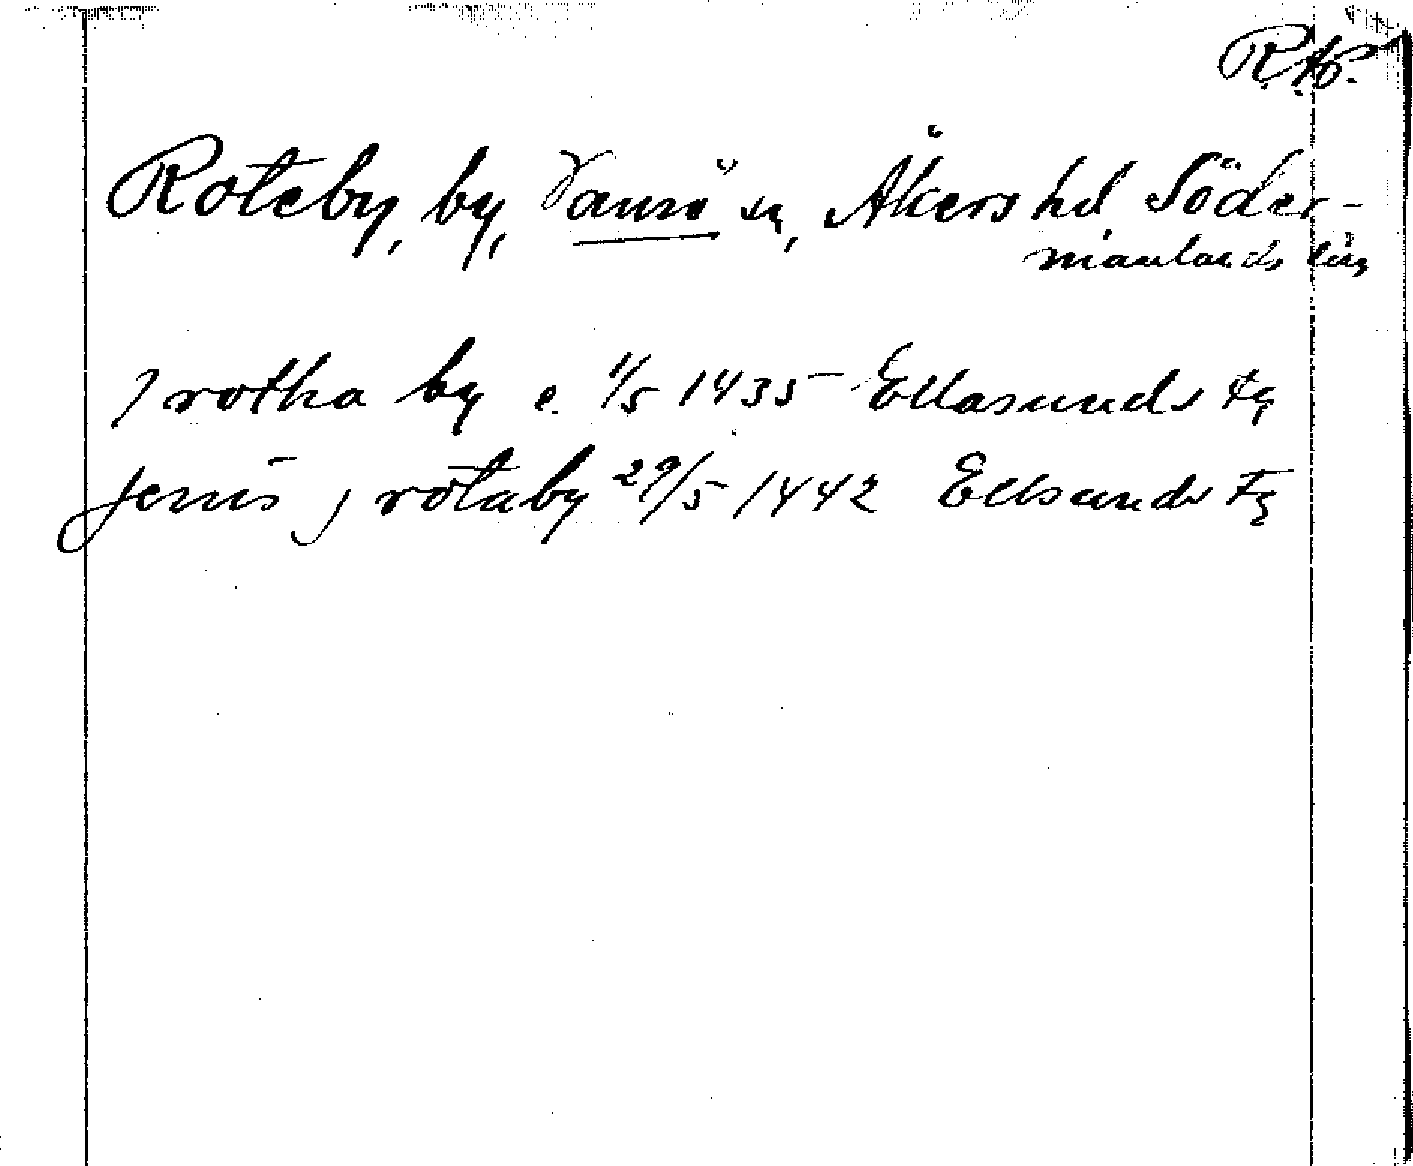 R.Ap.
Roteby, by, Vansö sn, Åkers hd Söder-
manlands län
J rotha by c. 1/5 1435 Ellasunds Fg
Jenis j rotaby 29/5 1442 Ellsunds Fg